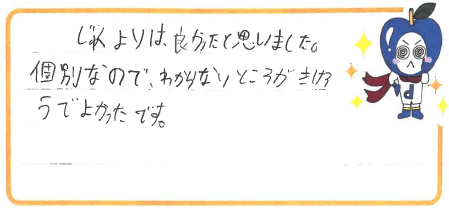 じゅくよりは良かったと思いました。
個別なので、わからないところがきけそ
うでよかったです。
d